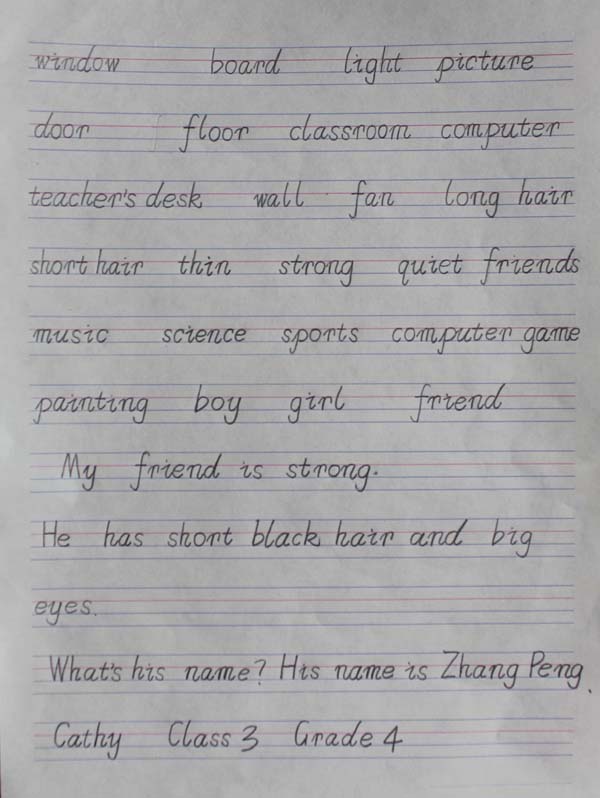 window board light picture
door floor classroom computer
teacher's desk wall fan long hair
short hair thin strong quiet friends
music science sports computer game
painting boy girl friend
My friend is strong.
He has short black hair and big
eyes.
What's his name? His name is Zhang Peng.
Cathy Class 3 Grade 4